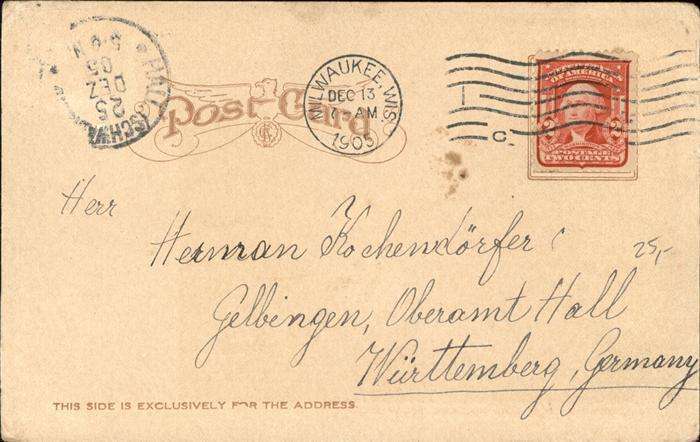 Post Card
MILWAUKEE, WIS.
DEC 13
AM
1905
C.
HALL (SCHWÄ
25
DEZ
05
OF AMERICA
2
2
POSTAGE
TWO CENTS
Herr
Herman Kochendörfer
25,-
Gelbingen, Oberamt Hall
Württemberg, Germany
THIS SIDE IS EXCLUSIVELY FOR THE ADDRESS.